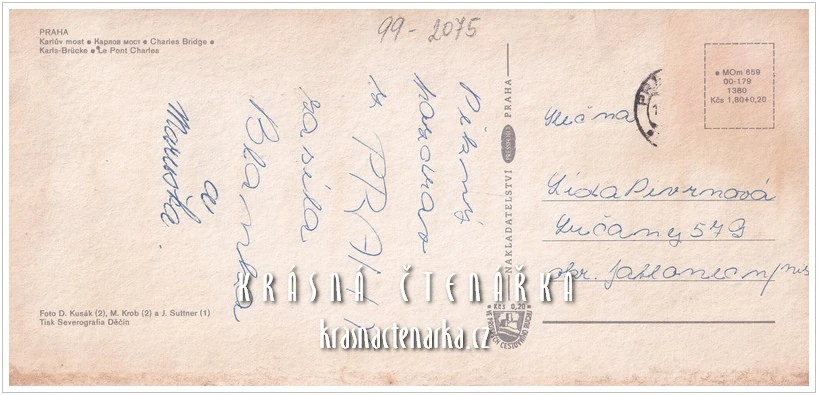 99-2075
PRAHA
Karlův most • Карлов мост • Charles Bridge •
Karls-Brücke • Le Pont Charles
Pěkný
pozdrav
z PRAHY
zasílá
Blanka
a
Maruška
Foto D. Kusák (2), M. Krob (2) a J. Suttner (1)
Tisk Severografia Děčín
NAKLADATELSTVÍ PRESSFOTO PRAHA
Kčs 0,20
• MOm 659
00-179
1380
Kčs 1,80+0,20
Slečna
Lída Pivrnová
Lučany 579
okr. Jablonec n/Nis
KRÁSNÁ ČTENÁŘKA
krasnactenarka.cz